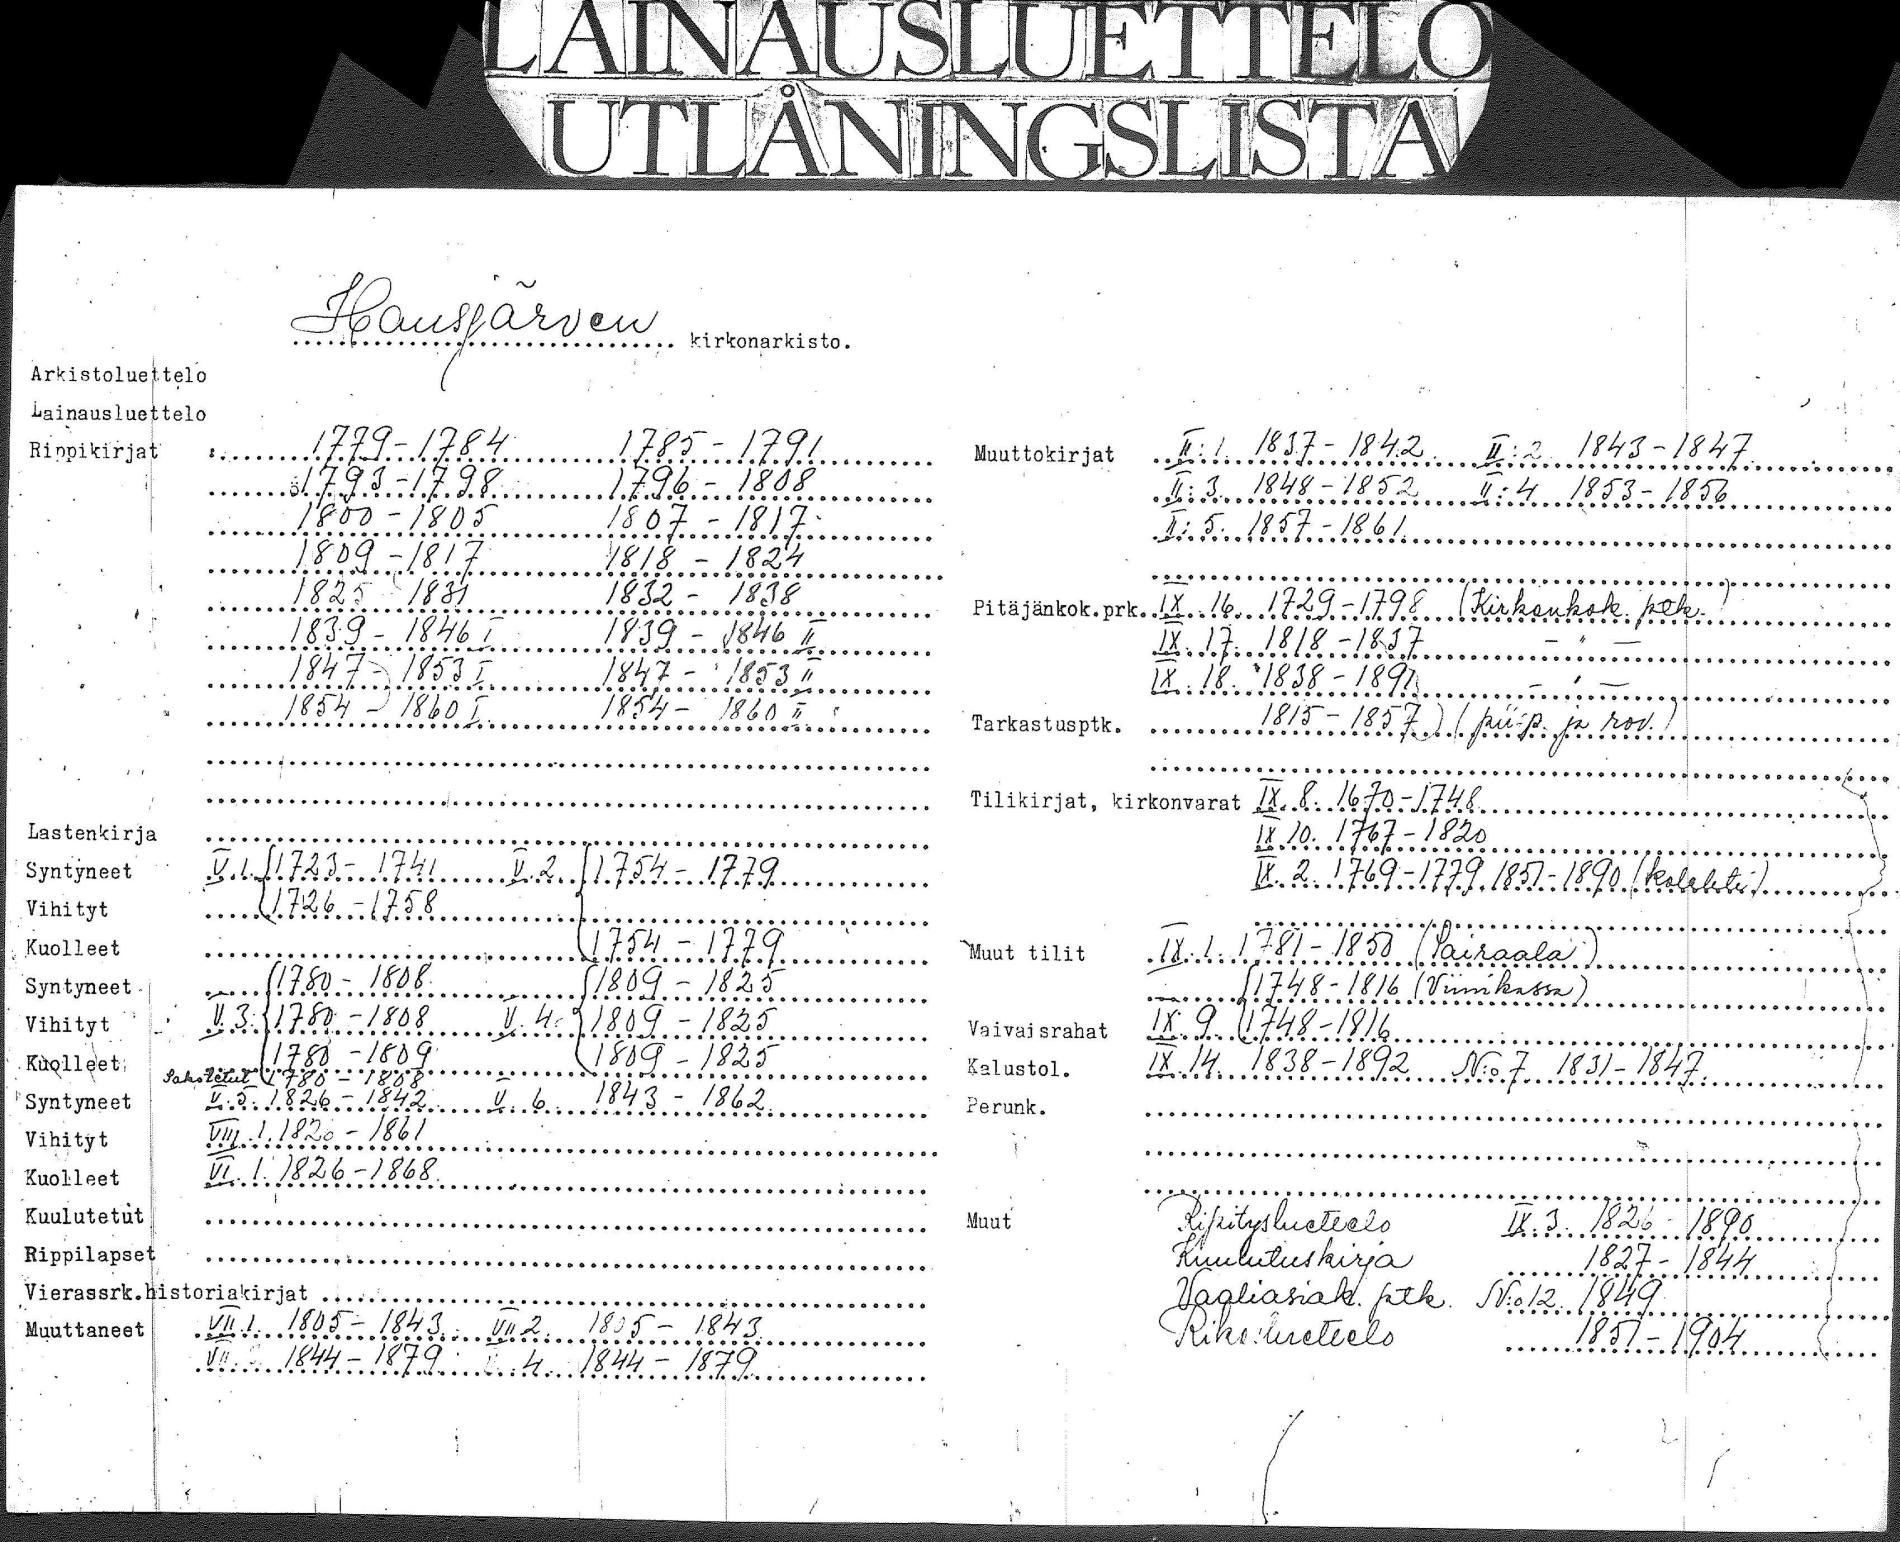 LAINAUSLUETTELO
UTLÅNINGSLISTA
Hausjärven kirkonarkisto.
Arkistoluettelo
Lainausluettelo
Rippikirjat 1779-1784 1785-1791
1793-1798 1796-1808
1800-1805 1807-1817
1809-1817 1818-1824
1825 1831 1832-1838
1839-1846 I 1839-1846 II
1847-1853 I 1847-1853 II
1854-1860 I 1854-1860 II
Lastenkirja
Syntyneet V.1. 1723-1741 V.2 1754-1779
Vihityt 1726-1758
Kuolleet 1754-1779
Syntyneet 1780-1808 1809-1825
Vihityt V.3. 1780-1808 V.4. 1809-1825
Kuolleet 1780-1809 1809-1825
Sakotetut 1780-1808
Syntyneet V.5. 1826-1842 V.6 1843-1862
Vihityt VIII.1. 1826-1861
Kuolleet VI.1. 1826-1868
Kuulutetut
Rippilapset
Vierassrk.historiakirjat
Muuttaneet VII.1. 1805-1843 VII.2. 1805-1843
VII. 1844-1879 4. 1844-1879
Muuttokirjat II:1. 1837-1842 II:2 1843-1847
II:3. 1848-1852 II:4 1853-1856
II:5. 1857-1861
Pitäjänkok.prk. IX.16. 1729-1798 (Kirkonkok. ptk.)
IX.17. 1818-1837 - " -
IX.18. 1838-1891 - " -
Tarkastusptk. 1815-1857 (piisp. ja rov.)
Tilikirjat, kirkonvarat IX.8. 1670-1748
IX.10. 1767-1820
IX.2. 1769-1779, 1851-1890 (kolehti)
Muut tilit IX.1. 1781-1850 (Sairaala)
1748-1816 (Viinikassa)
Vaivaisrahat IX.9. 1748-1816
Kalustol. IX.14. 1838-1892 N:o 7 1831-1847
Perunk.
Muut Ripitysluettelo IX.3. 1826-1890
Kuulutuskirja 1827-1844
Vaaliasiak. ptk. N:o 12. 1849
Rikosluettelo 1851-1904